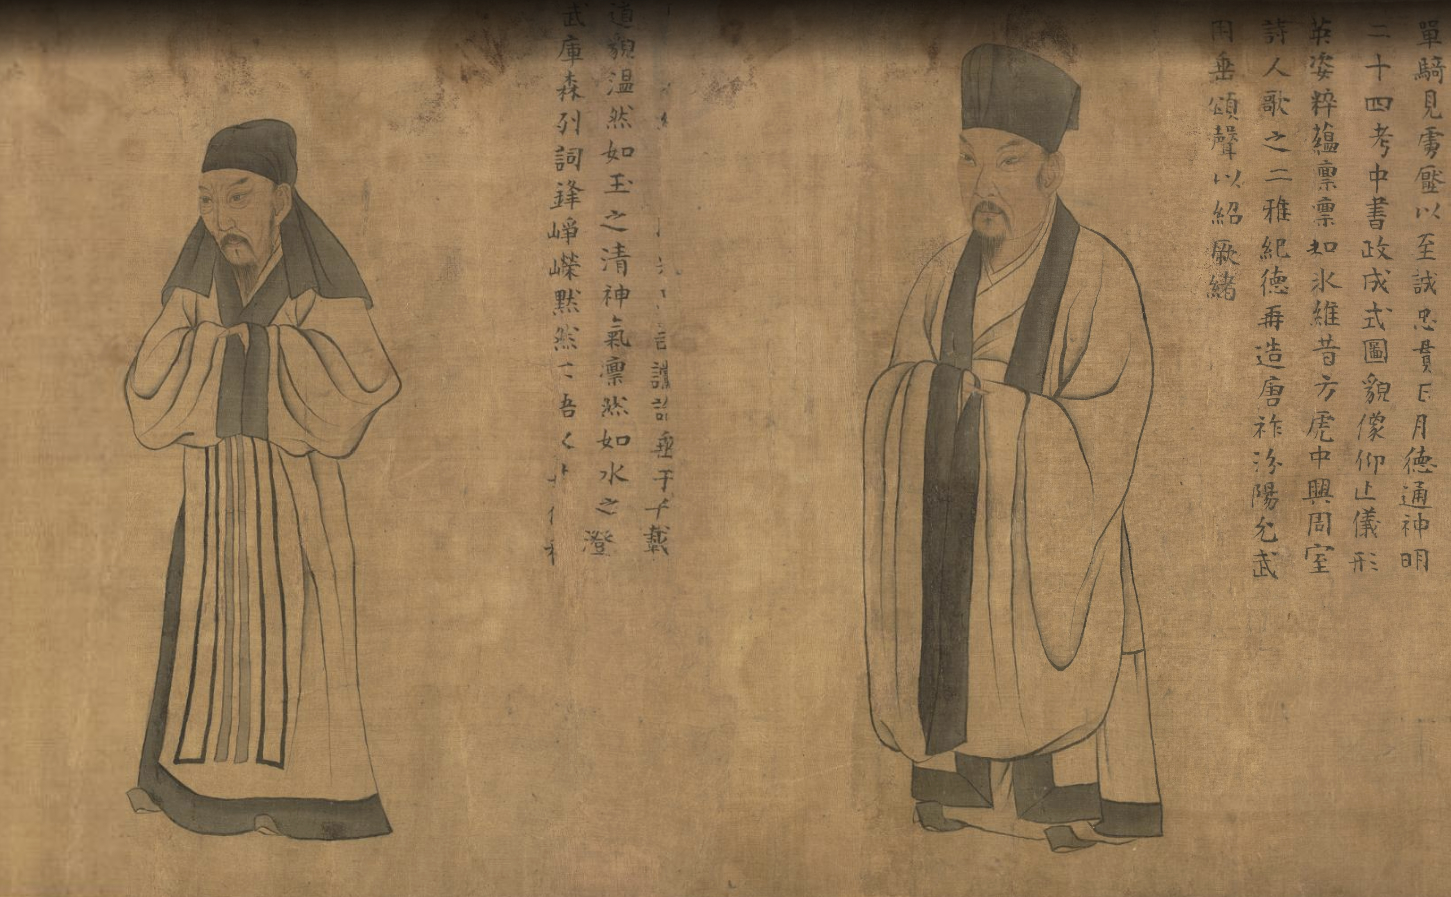 單騎見虜壓以至誠忠貫日月德通神明
二十四考中書政成式圖貌像仰止儀形
英姿粹蘊凜凜如冰維昔方虎中興周室
詩人歌之二雅紀德再造唐祚汾陽允武
垂頌聲以紹厥緒
垂于千載
道貌溫然如玉之清神氣凜然如水之澄
武庫森列詞鋒崢嶸默然吾